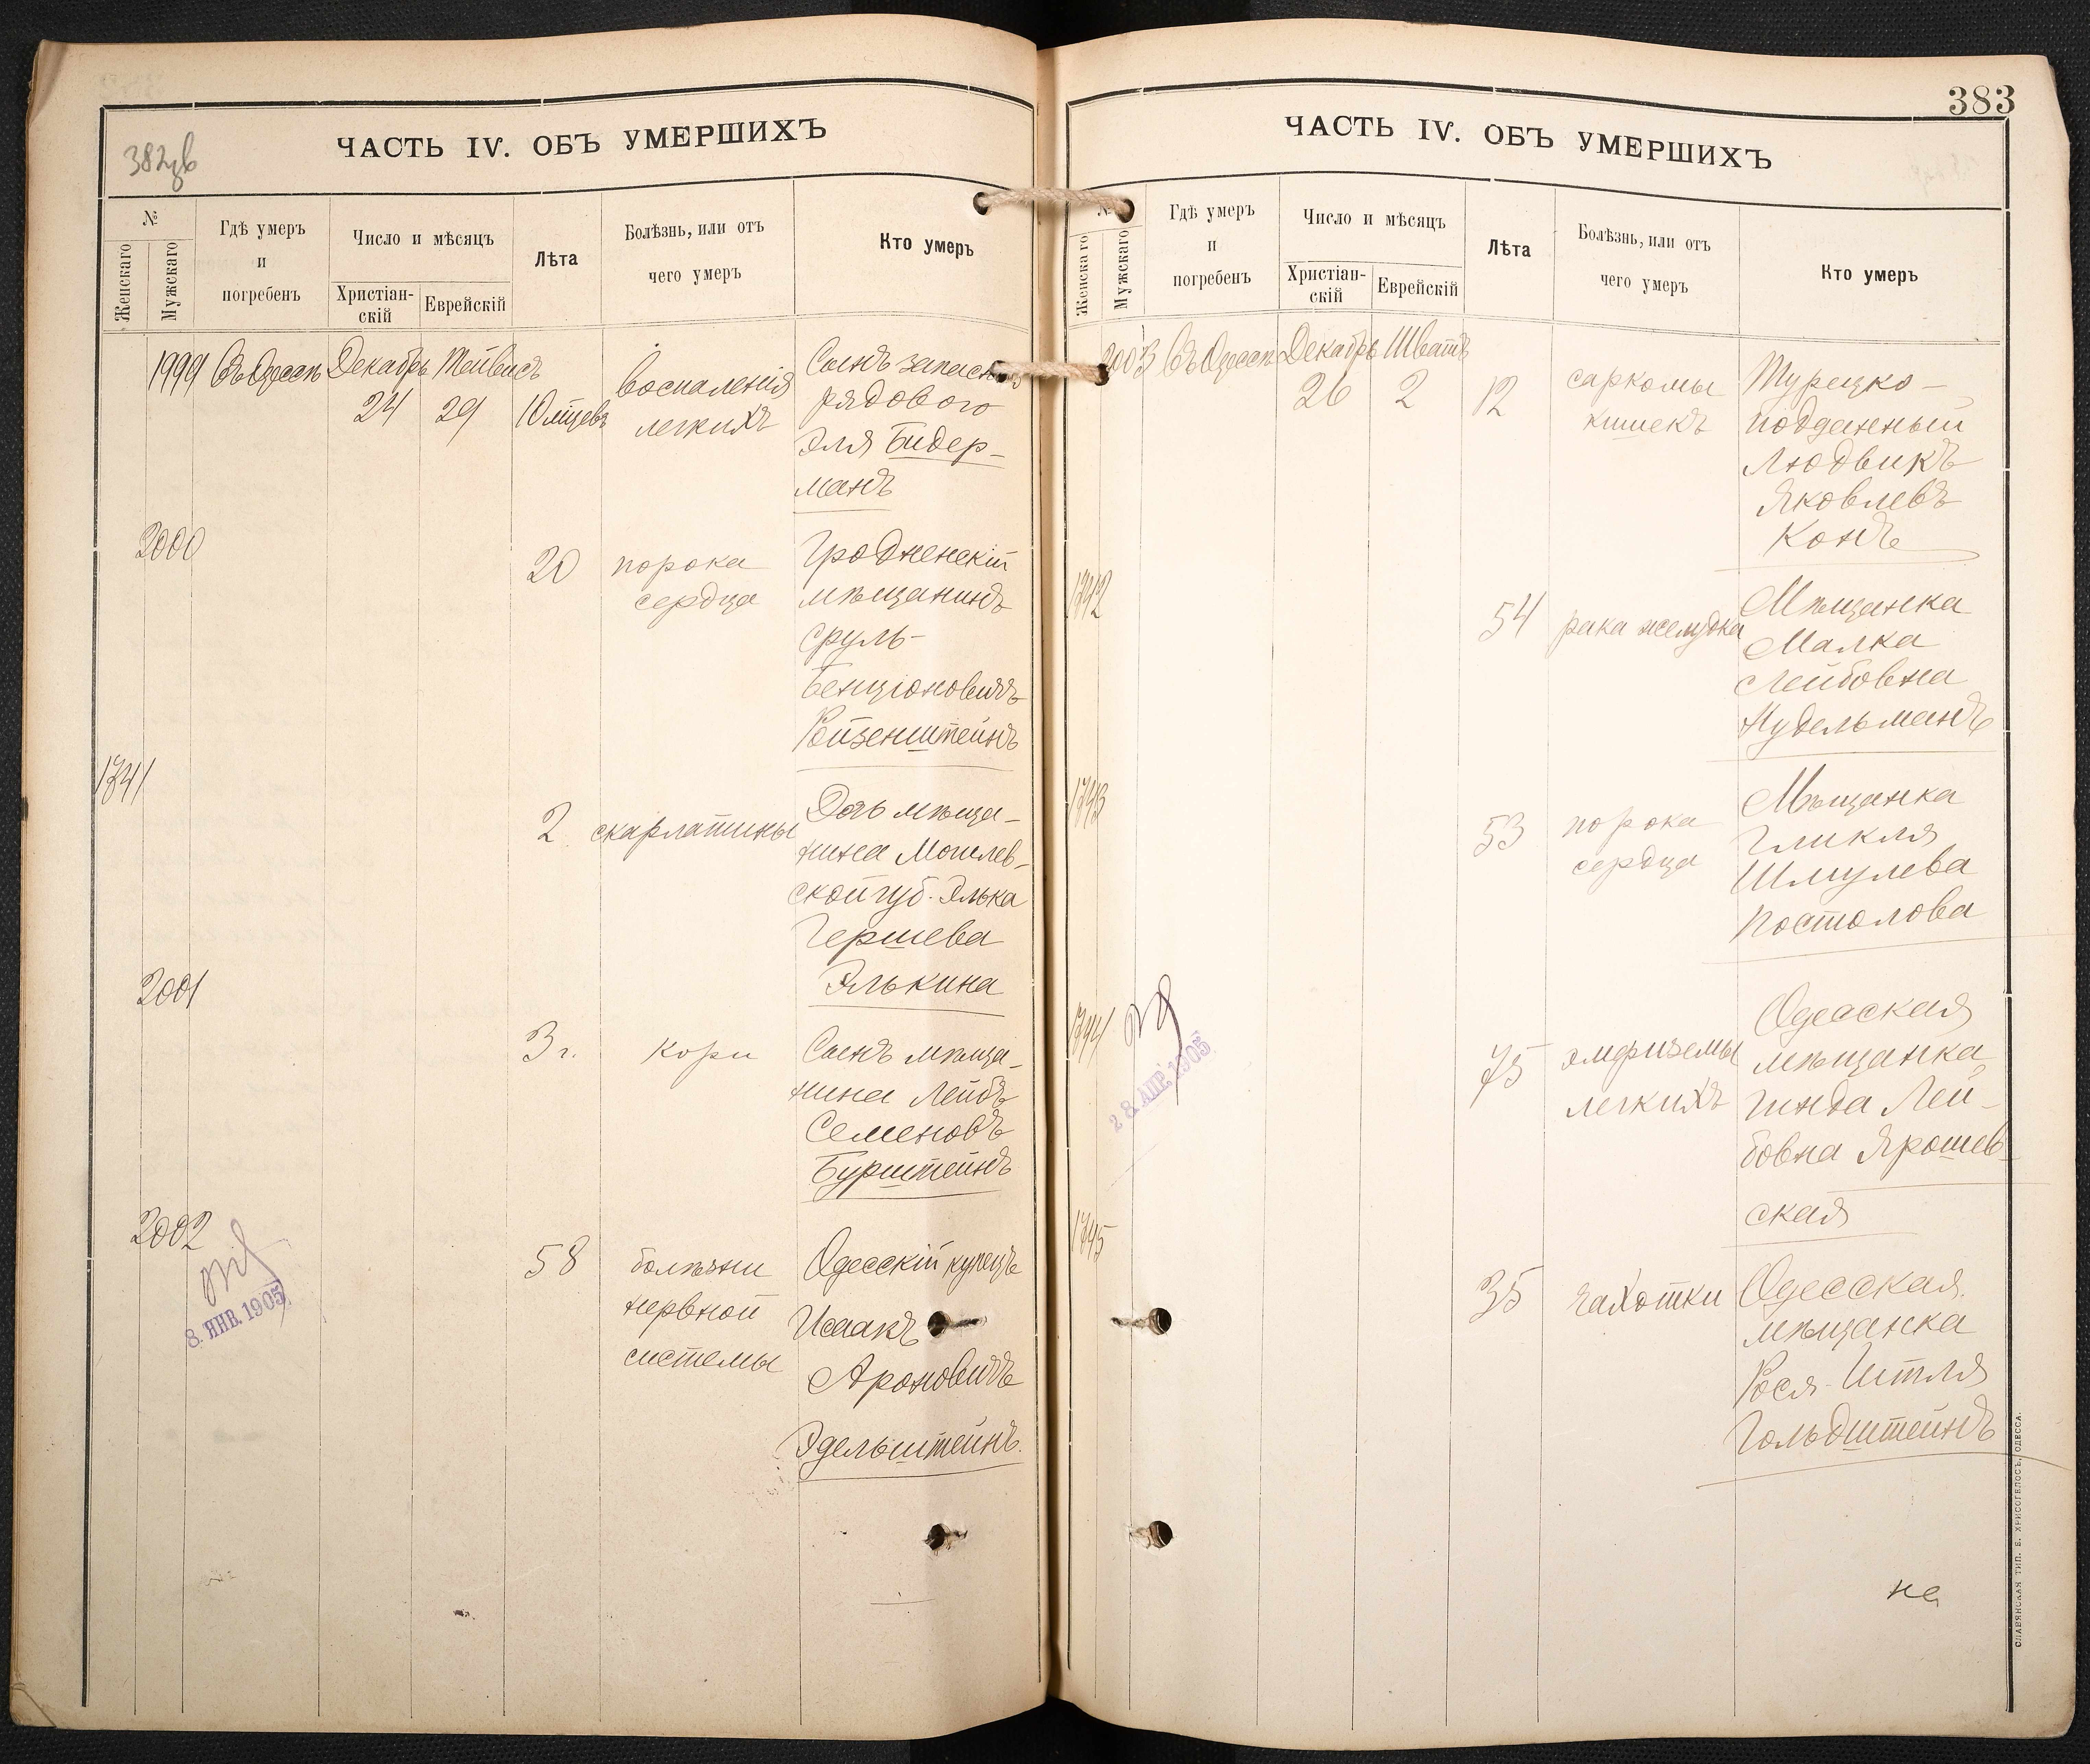 382зв
ЧАСТЬ IV. ОБЪ УМЕРШИХЪ
№
Женскаго
Мужскаго
Гдѣ умеръ
и
погребенъ
Число и мѣсяцъ
Христіан-
скій
Еврейскій
Лѣта
Болѣзнь, или отъ
чего умеръ
Кто умеръ
1999 Въ Одессѣ Декабрь Тейвисъ
24 29 10 мѣсцевъ
воспаленія
легкихъ
Сынъ запасн
рядового
Эля Бидер-
манъ
2000
20
порока
сердца
Гродненскій
мѣщанинъ
Сруль-
Бенціоновичъ
Ройзенштейнъ
1741
2 скарлатины
Дочь мѣща-
нина Могилев-
ской губ. Элька
Гершева
Элькина
2001
3 г. кори
Сынъ мѣща-
нина Лейбъ
Семеновъ
Бурштейнъ
2002
8. ЯНВ. 1905
58
болѣзни
нервной
системы
Одесскій купецъ
Исаакъ
Ароновичъ
Эдельштейнъ.
383
ЧАСТЬ IV. ОБЪ УМЕРШИХЪ
№
Женскаго
Мужскаго
Гдѣ умеръ
и
погребенъ
Число и мѣсяцъ
Христіан-
скій
Еврейскій
Лѣта
Болѣзнь, или отъ
чего умеръ
Кто умеръ
2003 Въ Одессѣ Декабрь Шватъ
26 2 12
саркомы
кишекъ
Турецко-
подданный
Людвикъ
Яковлевъ
Конъ
1742
54 рака желудка
Мѣщанка
Малка
Лейбовна
Нудельманъ
1743
53
порока
сердца
Мѣщанка
Гликля
Шмулева
Постолова
1744
28 АПР. 1905
75
эмфиземы
легкихъ
Одесская
мѣщанка
Гинда Лей-
бовна Ярошев-
ская
1745
35 чахотки
Одесская
мѣщанка
Рося-Итля
Гольдштейнъ
на
СЛАВЯНСКАЯ ТИП. Е. ХРИСОГЕЛОСЪ, ОДЕССА.